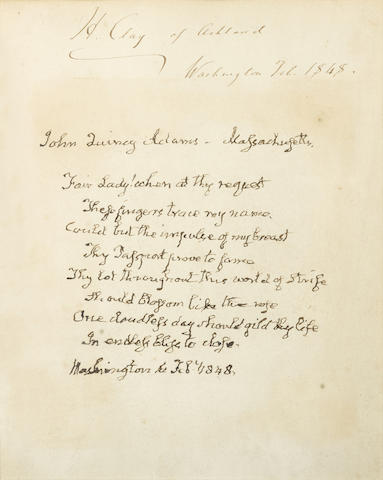 H. Clay of Ashland
Washington Feb. 1848.
John Quincy Adams - Massachusetts.
Fair Lady! when at thy request
These fingers trace my name.
Could but the impulse of my breast
Thy Passport prove to fame
Thy lot throughout this world of Strife
Should Blossom like the rose
One cloudless day should gild thy life
In endless bliss to close.
Washington Feb 1848.